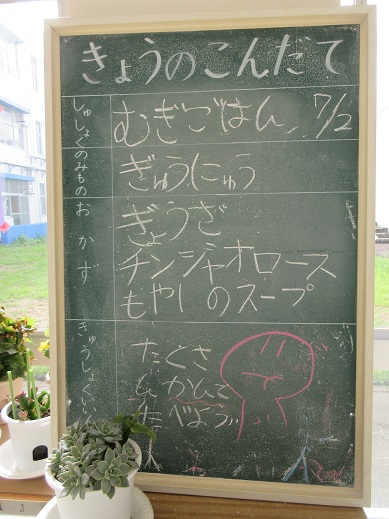 きょうのこんだて
しゅしょく
むぎごはん 7/2
のみもの
ぎゅうにゅう
おかず
ぎょうざ
チンジャオロース
もやしのスープ
きゅうしょくいいん
たくさ
かんで
たべよう